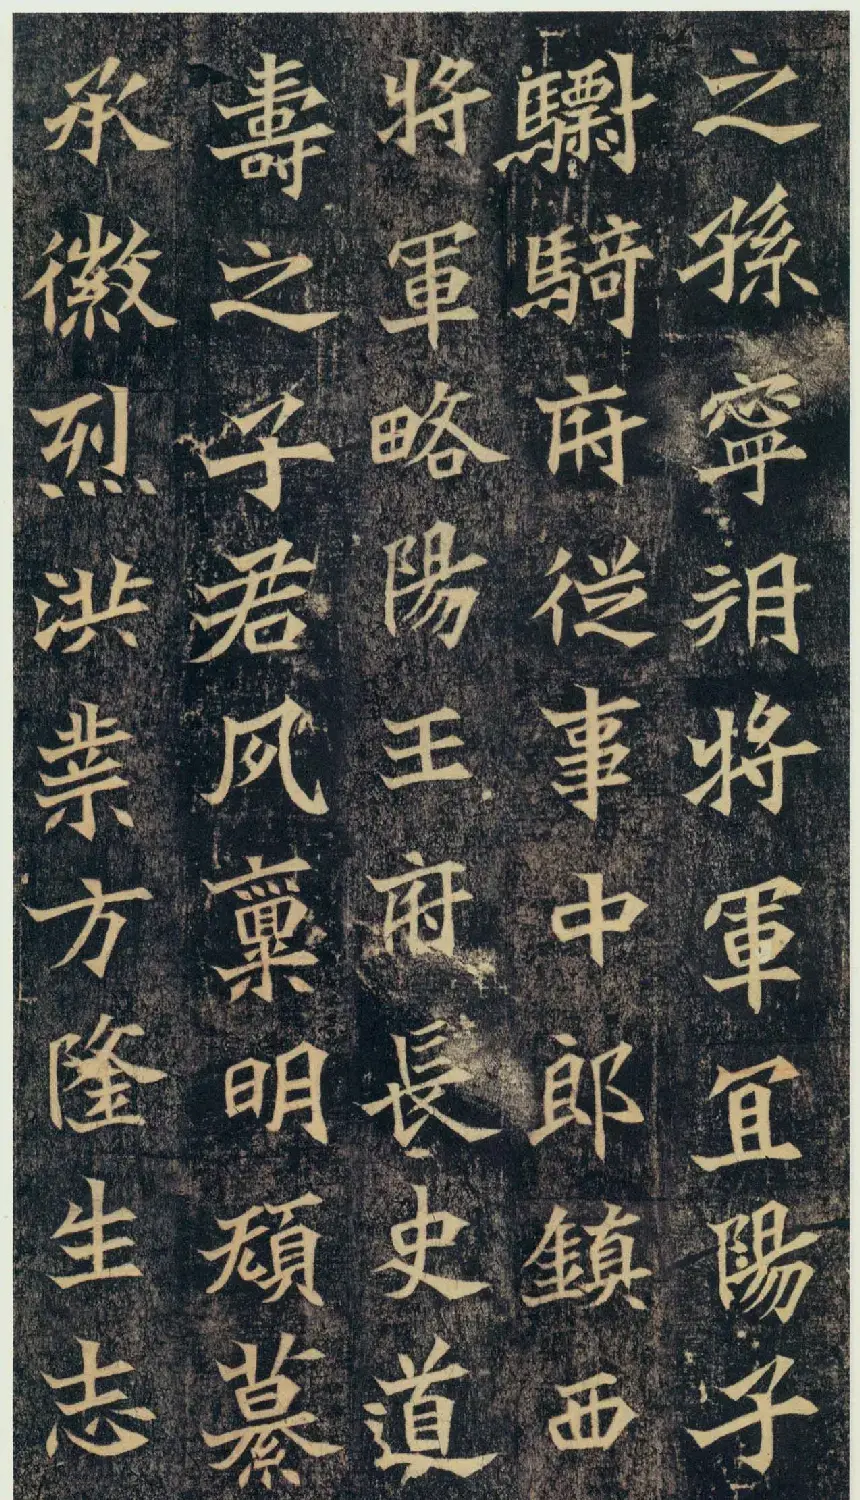 之孫寧朔將軍宜陽子
驃騎府從事中郎鎮西
將軍略陽王府長史道
壽之子君夙稟明穎纂
承徽烈洪業方隆生志